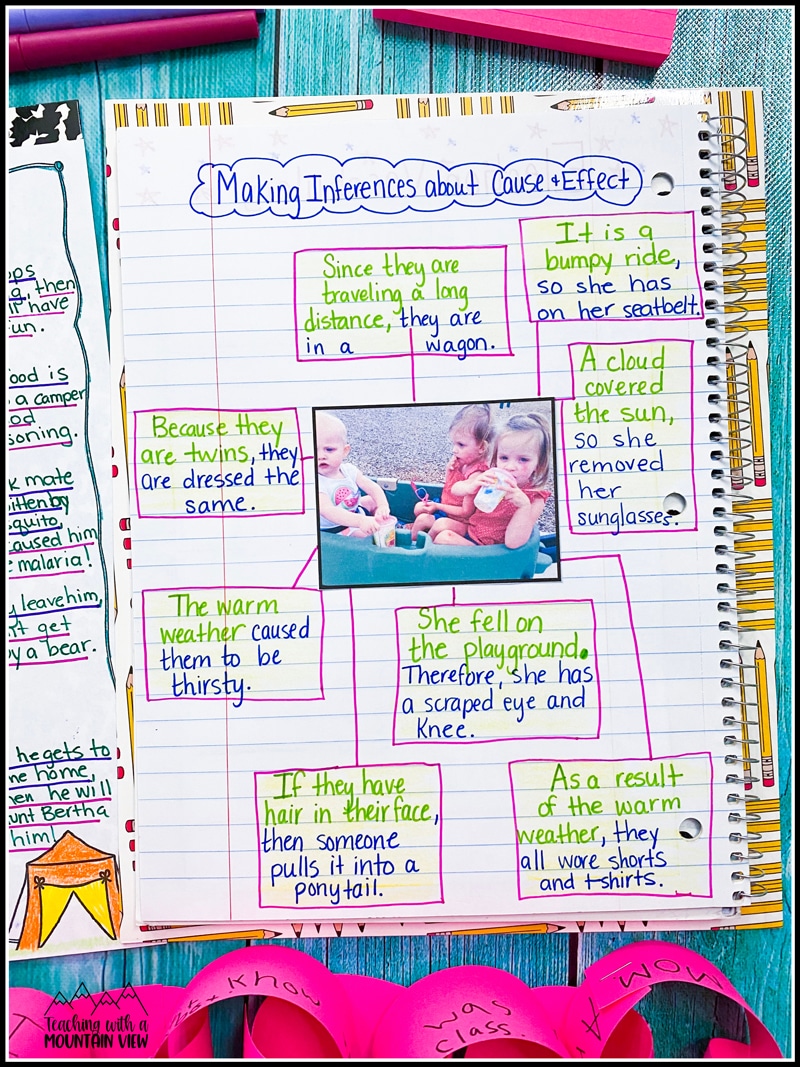 Making Inferences about Cause + Effect
Since they are
traveling a long
distance, they are
in a wagon.
It is a
bumpy ride,
so she has
on her seatbelt.
A cloud
covered
the sun,
so she
removed
her
sunglasses.
Because they
are twins, they
are dressed the
same.
The warm
weather caused
them to be
thirsty.
She fell on
the playground.
Therefore, she has
a scraped eye and
Knee.
If they have
hair in their face,
then someone
pulls it into a
ponytail.
As a result
of the warm
weather, they
all wore shorts
and t-shirts.
then
have
food is
a camper
mate
caused him
malaria!
leave him,
get
by a bear.
he gets to
home,
he will
Bertha
him!
know
was
class.
WOW
A
Teaching with a
MOUNTAIN VIEW